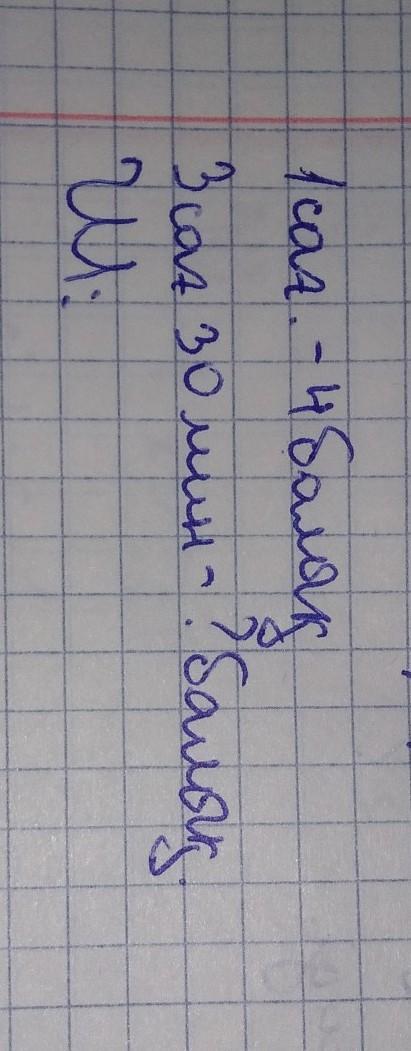 1 сағ. - 4 балық
3 сағ 30 мин - ? балық.
Ш: